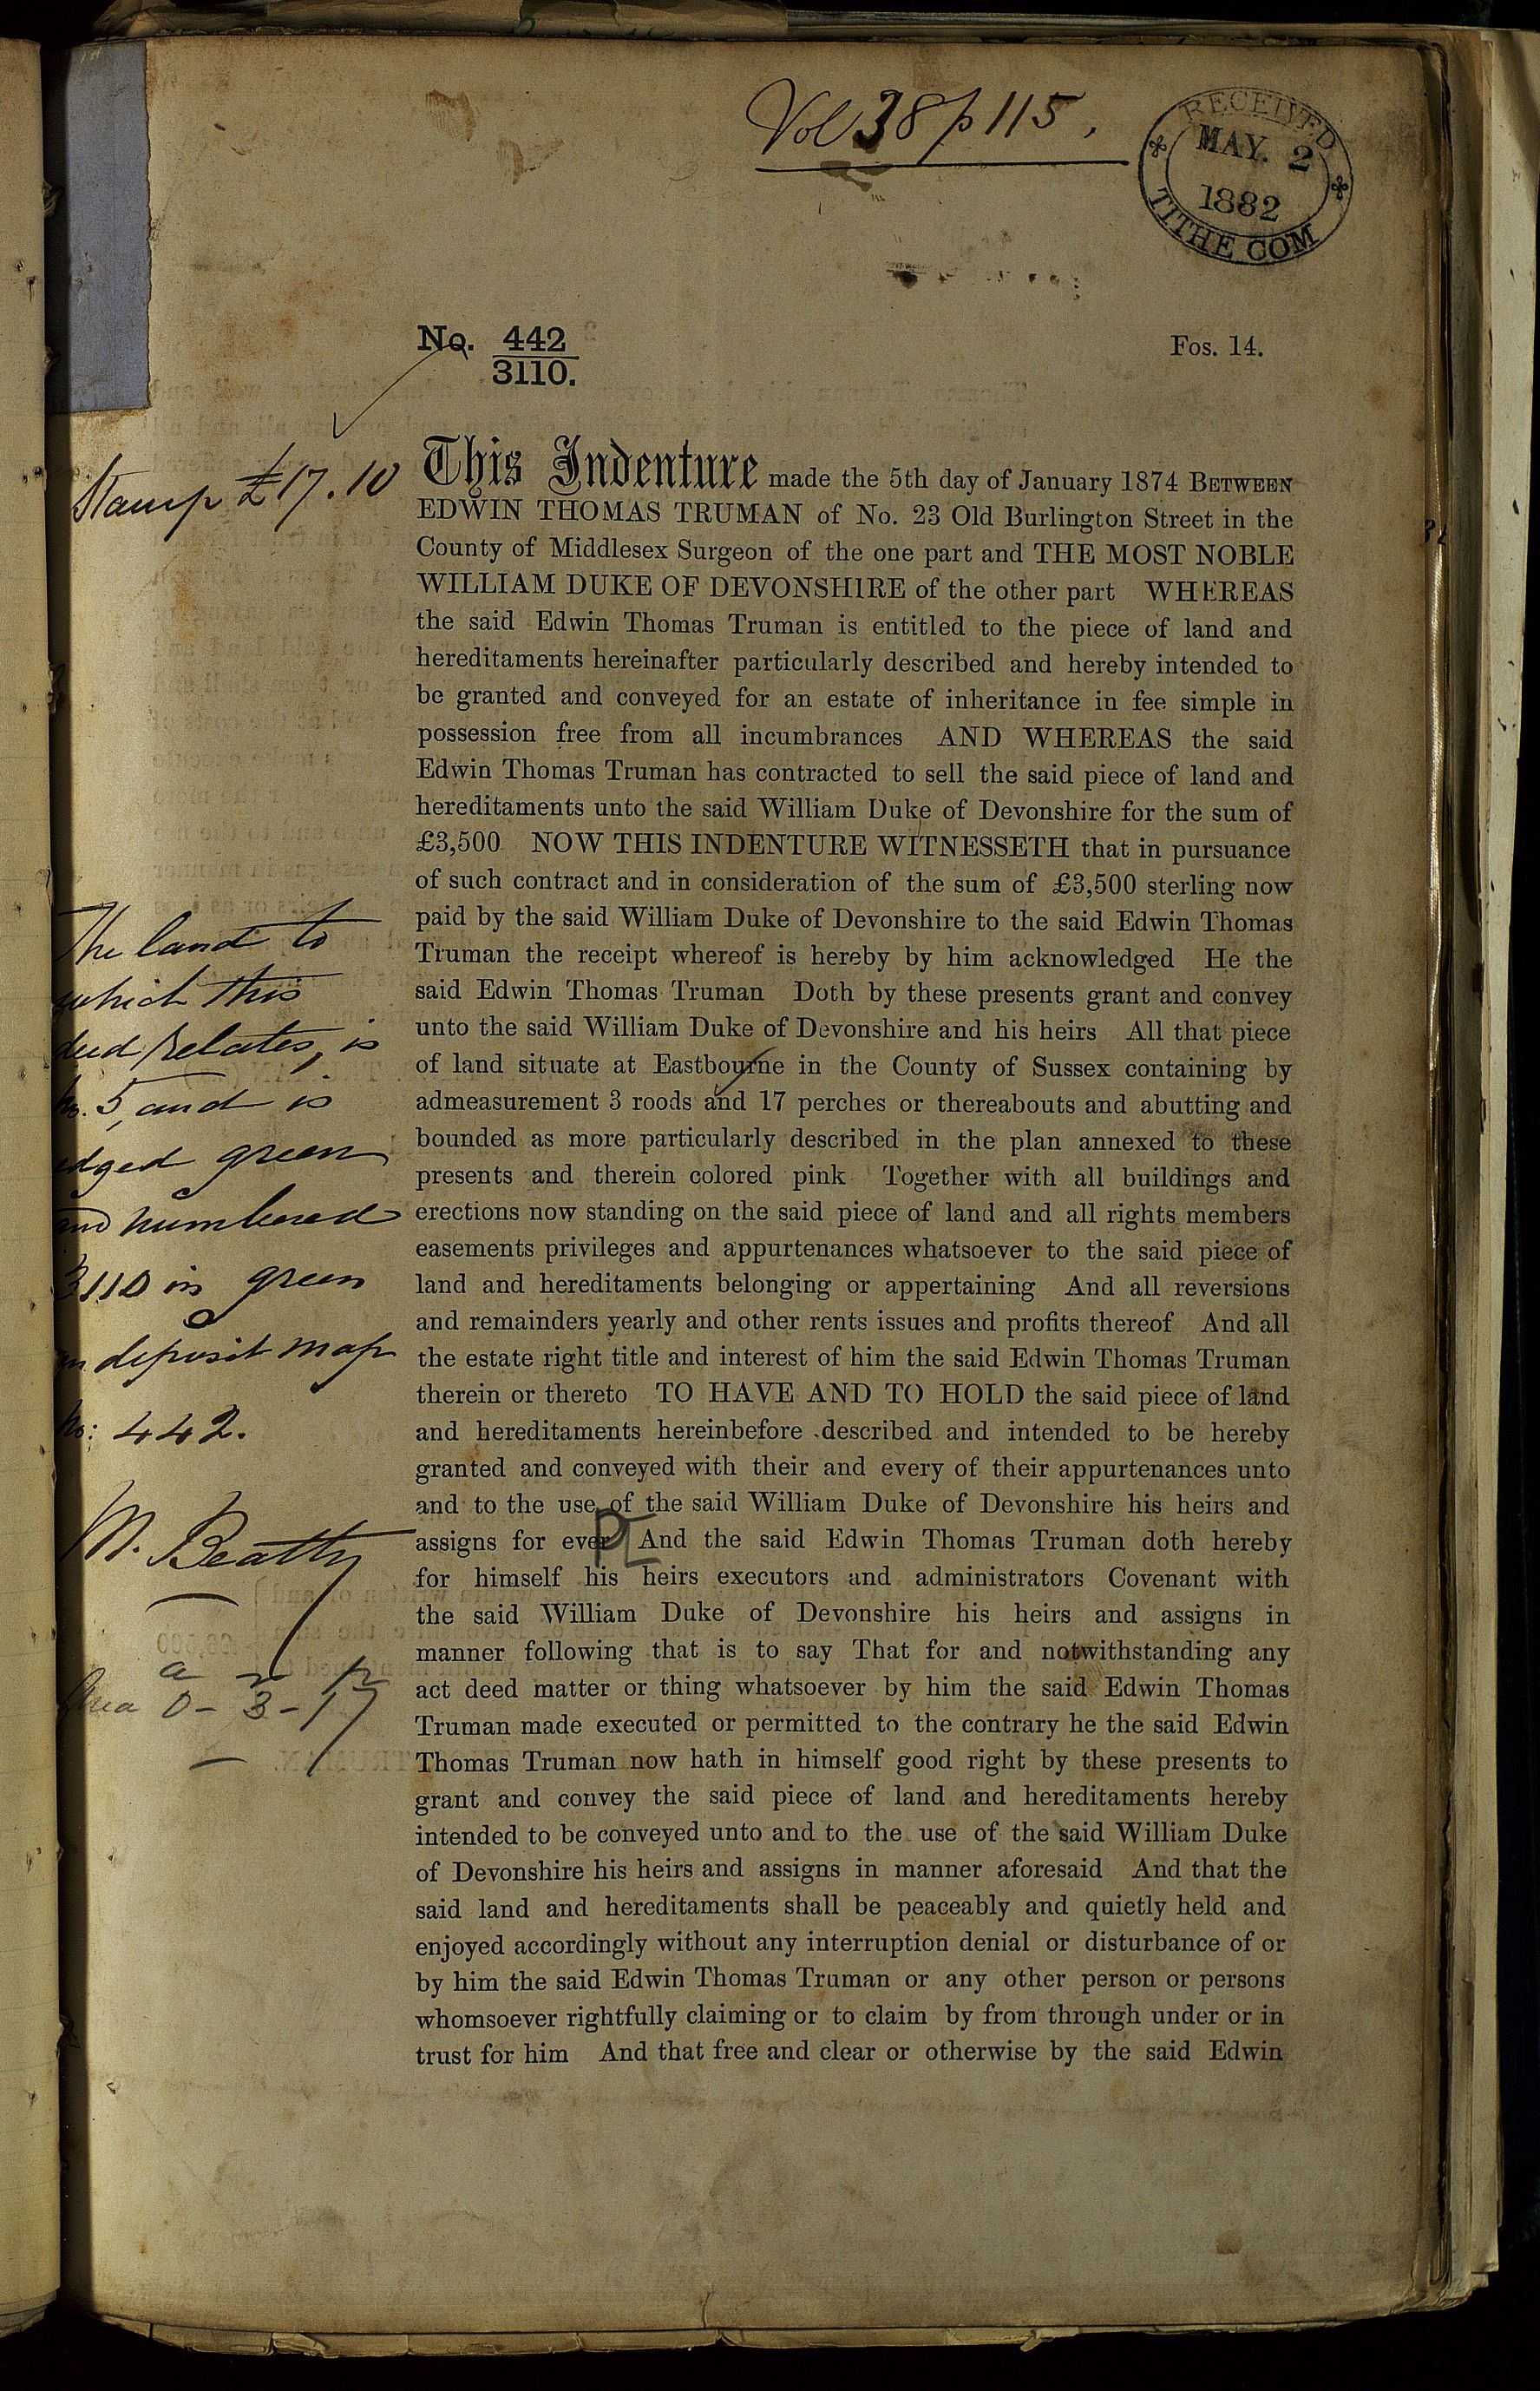 Vol 38 p 115.
RECEIVED
MAY. 2
1882
TITHE COM
No. 442
3110.
Fos. 14.
Stamp £17.10
This Indenture made the 5th day of January 1874 BETWEEN
EDWIN THOMAS TRUMAN of No. 23 Old Burlington Street in the
County of Middlesex Surgeon of the one part and THE MOST NOBLE
WILLIAM DUKE OF DEVONSHIRE of the other part WHEREAS
the said Edwin Thomas Truman is entitled to the piece of land and
hereditaments hereinafter particularly described and hereby intended to
be granted and conveyed for an estate of inheritance in fee simple in
possession free from all incumbrances AND WHEREAS the said
Edwin Thomas Truman has contracted to sell the said piece of land and
hereditaments unto the said William Duke of Devonshire for the sum of
£3,500 NOW THIS INDENTURE WITNESSETH that in pursuance
of such contract and in consideration of the sum of £3,500 sterling now
paid by the said William Duke of Devonshire to the said Edwin Thomas
Truman the receipt whereof is hereby by him acknowledged He the
said Edwin Thomas Truman Doth by these presents grant and convey
unto the said William Duke of Devonshire and his heirs All that piece
of land situate at Eastbourne in the County of Sussex containing by
admeasurement 3 roods and 17 perches or thereabouts and abutting and
bounded as more particularly described in the plan annexed to these
presents and therein colored pink Together with all buildings and
erections now standing on the said piece of land and all rights members
easements privileges and appurtenances whatsoever to the said piece of
land and hereditaments belonging or appertaining And all reversions
and remainders yearly and other rents issues and profits thereof And all
the estate right title and interest of him the said Edwin Thomas Truman
therein or thereto TO HAVE AND TO HOLD the said piece of land
and hereditaments hereinbefore described and intended to be hereby
granted and conveyed with their and every of their appurtenances unto
and to the use of the said William Duke of Devonshire his heirs and
assigns for ever And the said Edwin Thomas Truman doth hereby
for himself his heirs executors and administrators Covenant with
the said William Duke of Devonshire his heirs and assigns in
manner following that is to say That for and notwithstanding any
act deed matter or thing whatsoever by him the said Edwin Thomas
Truman made executed or permitted to the contrary he the said Edwin
Thomas Truman now hath in himself good right by these presents to
grant and convey the said piece of land and hereditaments hereby
intended to be conveyed unto and to the use of the said William Duke
of Devonshire his heirs and assigns in manner aforesaid And that the
said land and hereditaments shall be peaceably and quietly held and
enjoyed accordingly without any interruption denial or disturbance of or
by him the said Edwin Thomas Truman or any other person or persons
whomsoever rightfully claiming or to claim by from through under or in
trust for him And that free and clear or otherwise by the said Edwin
The land to
which this
deed relates, is
No. 5, and is
edged green
and numbered
3110 in green
on deposit map
No: 442.
M. Beatty
a r p
Area 0-3-17